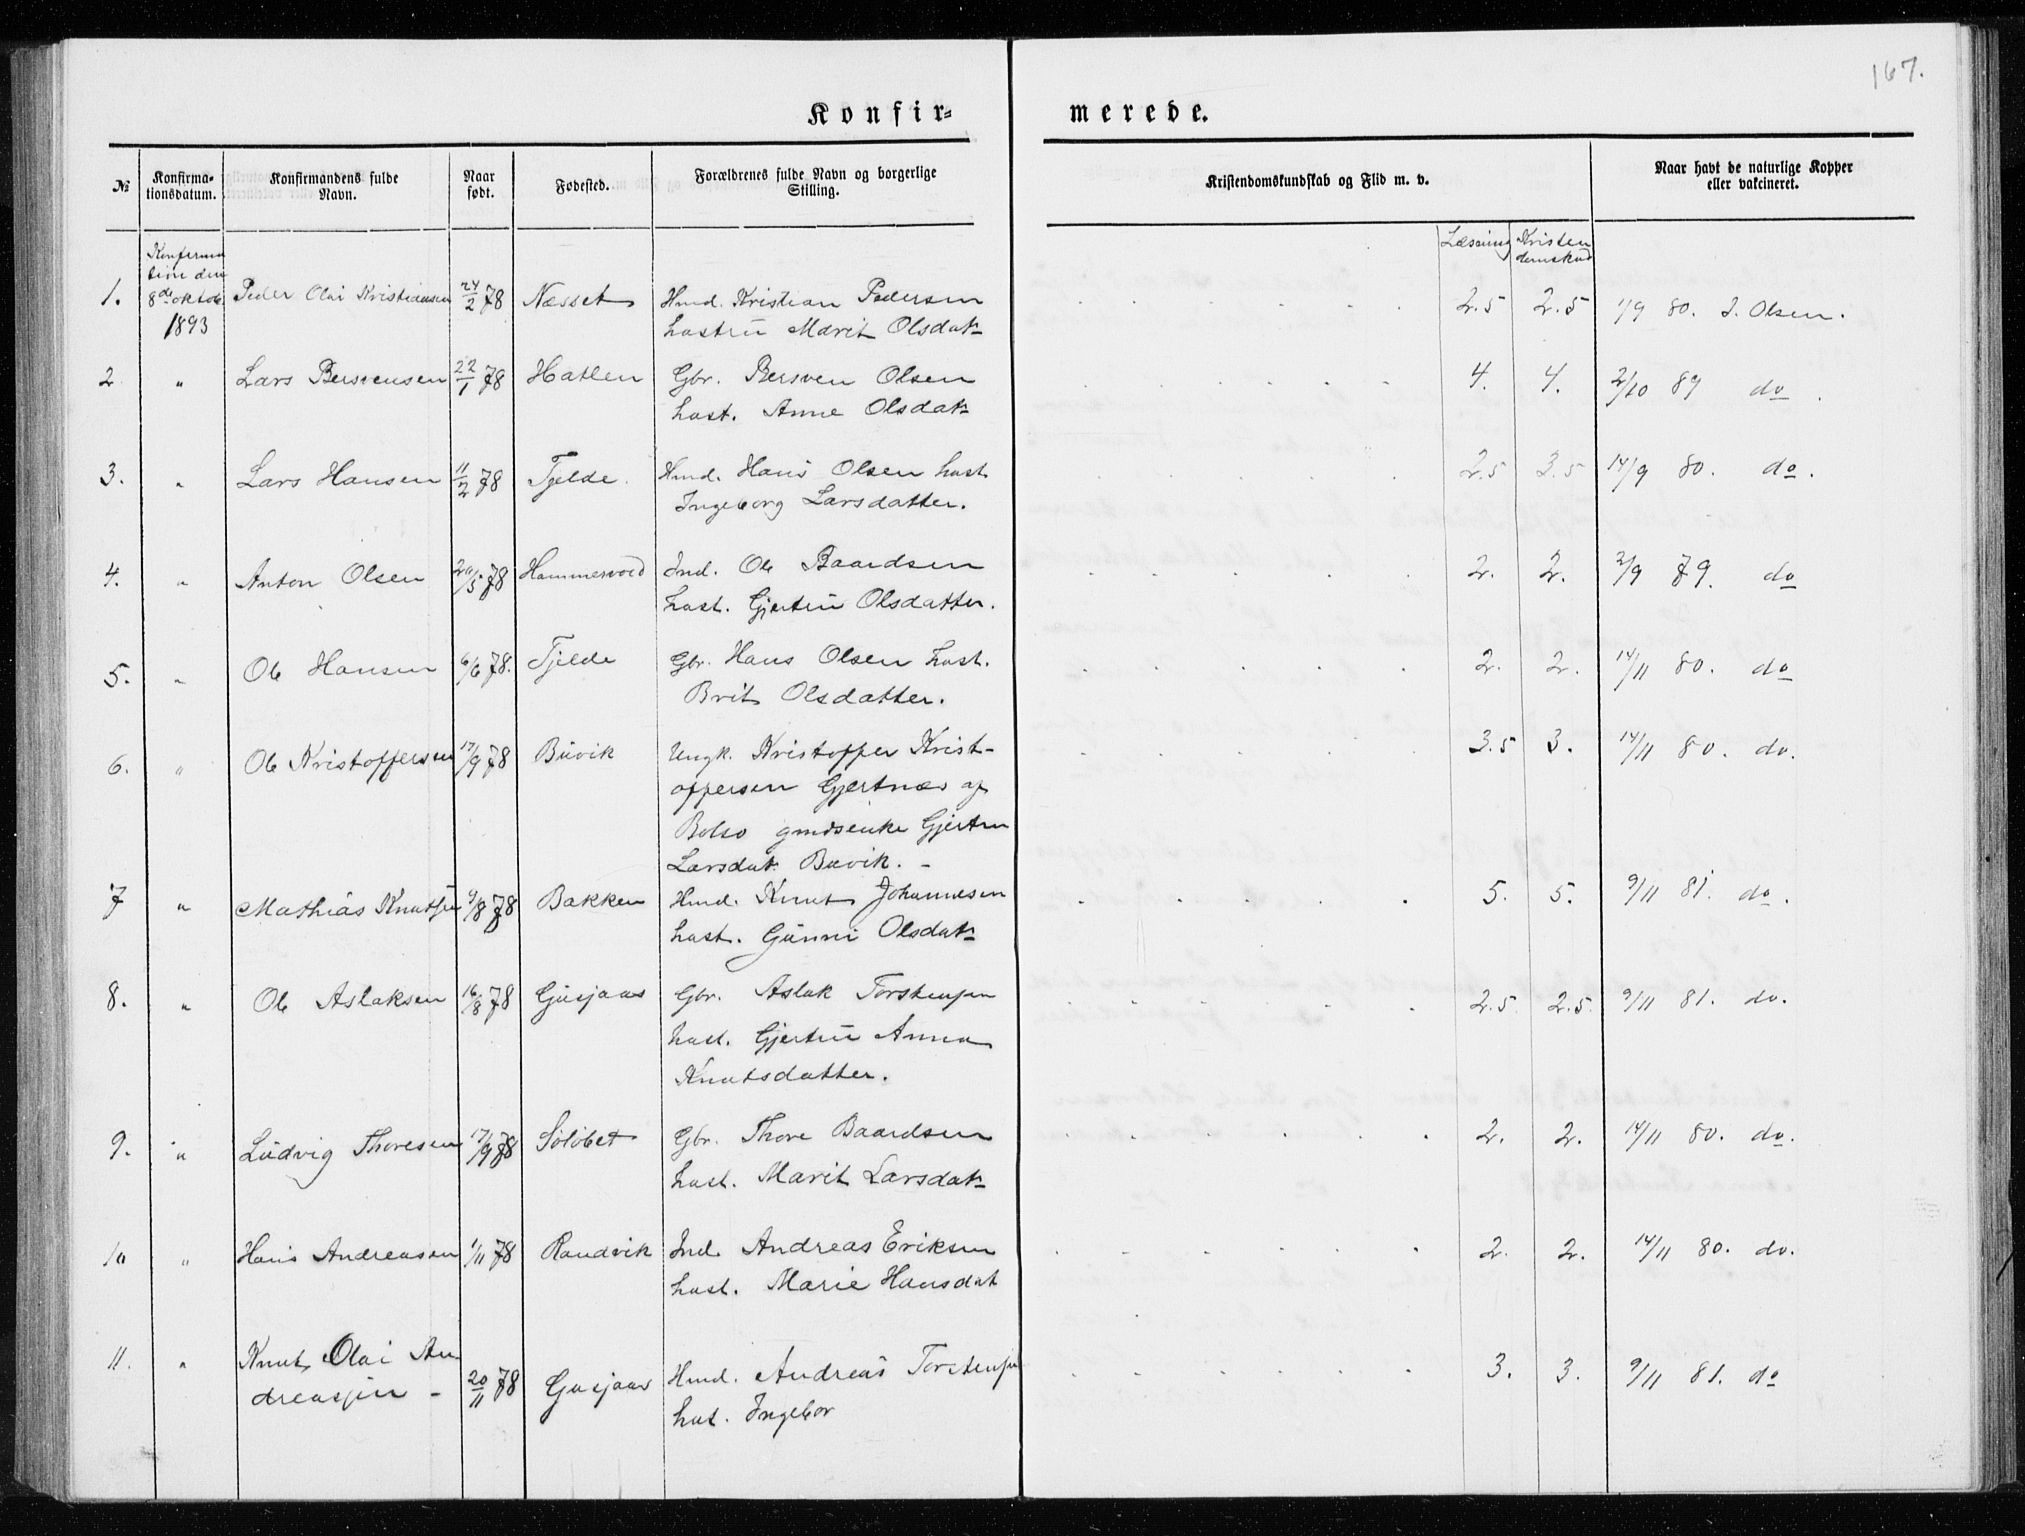 167.
Konfir- merede.
№ Konfirma-tionsdatum. Konfirmandens fulde Navn. Naar født. Fødested. Forældrenes fulde Navn og borgerlige Stilling. Kristendomskundskab og Flid m. v. Naar havt de naturlige Kopper eller vakcineret.
Konfirma Læsning Kristen
tion den domskud
1. 8de oktob Peder Olai Kristiansen 24/2 78 Næsset Hmd. Kristian Pedersen 2.5 2.5 1/9 80. J. Olsen.
1893 hustru Marit Olsdatr
2 " Lars Bersvensen 22/1 78 Hatlen Gbr. Bersven Olsen 4. 4. 2/10 89 do.
hust. Anne Olsdatr
3. " Lars Hansen 11/2 78 Tjelde. Hmd. Hans Olsen hust 2.5 3.5 14/9 80. do.
Ingeborg Larsdatter.
4. " Anton Olsen 20/5 78 Hammervold Ind. Ole Baardsen 2. 2. 2/9 79. do
hust. Gjertru Olsdatter.
5. " Ole Hansen 6/6 78. Tjelde Gbr. Hans Olsen hust. 2. 2. 14/11 80. do
Brit Olsdatter.
6. " Ole Kristoffersen 17/9 78 Buvik Ungk. Kristoffer Krist- 3.5 3. 14/11 80. do.
offersen Gjertnæs af
Bolsø Gjertru
Larsdatr Buvik. -
7 " Mathias Knutsen 9/8 78 Bakken Hmd. Knut Johannesen 5. 5. 9/11 81. do.
hust. Gunni Olsdatr
8. " Ole Aslaksen 16/8 78 Gusjaas Gbr. Aslak Torstensen 2.5. 2.5. 9/11 81. do.
hust. Gjertru Anna
Knutsdatter.
9. " Ludvig Thoresen 17/9 78 Sølöbet Gbr. Thore Baardsen 2. 2. 14/11 80. do.
hust. Marit Larsdatr
10 " Hans Andreasen 1/11 78 Randvik Ind. Andreas Eriksen 2. 2. 14/11 80. do.
hust. Marie Hansdat
11. " Knut Olai An
dreassen - 20/11 78 Gusjaas Hmd. Andreas Torstensen 3. 3. 9/11 81. do
hust. Ingebor